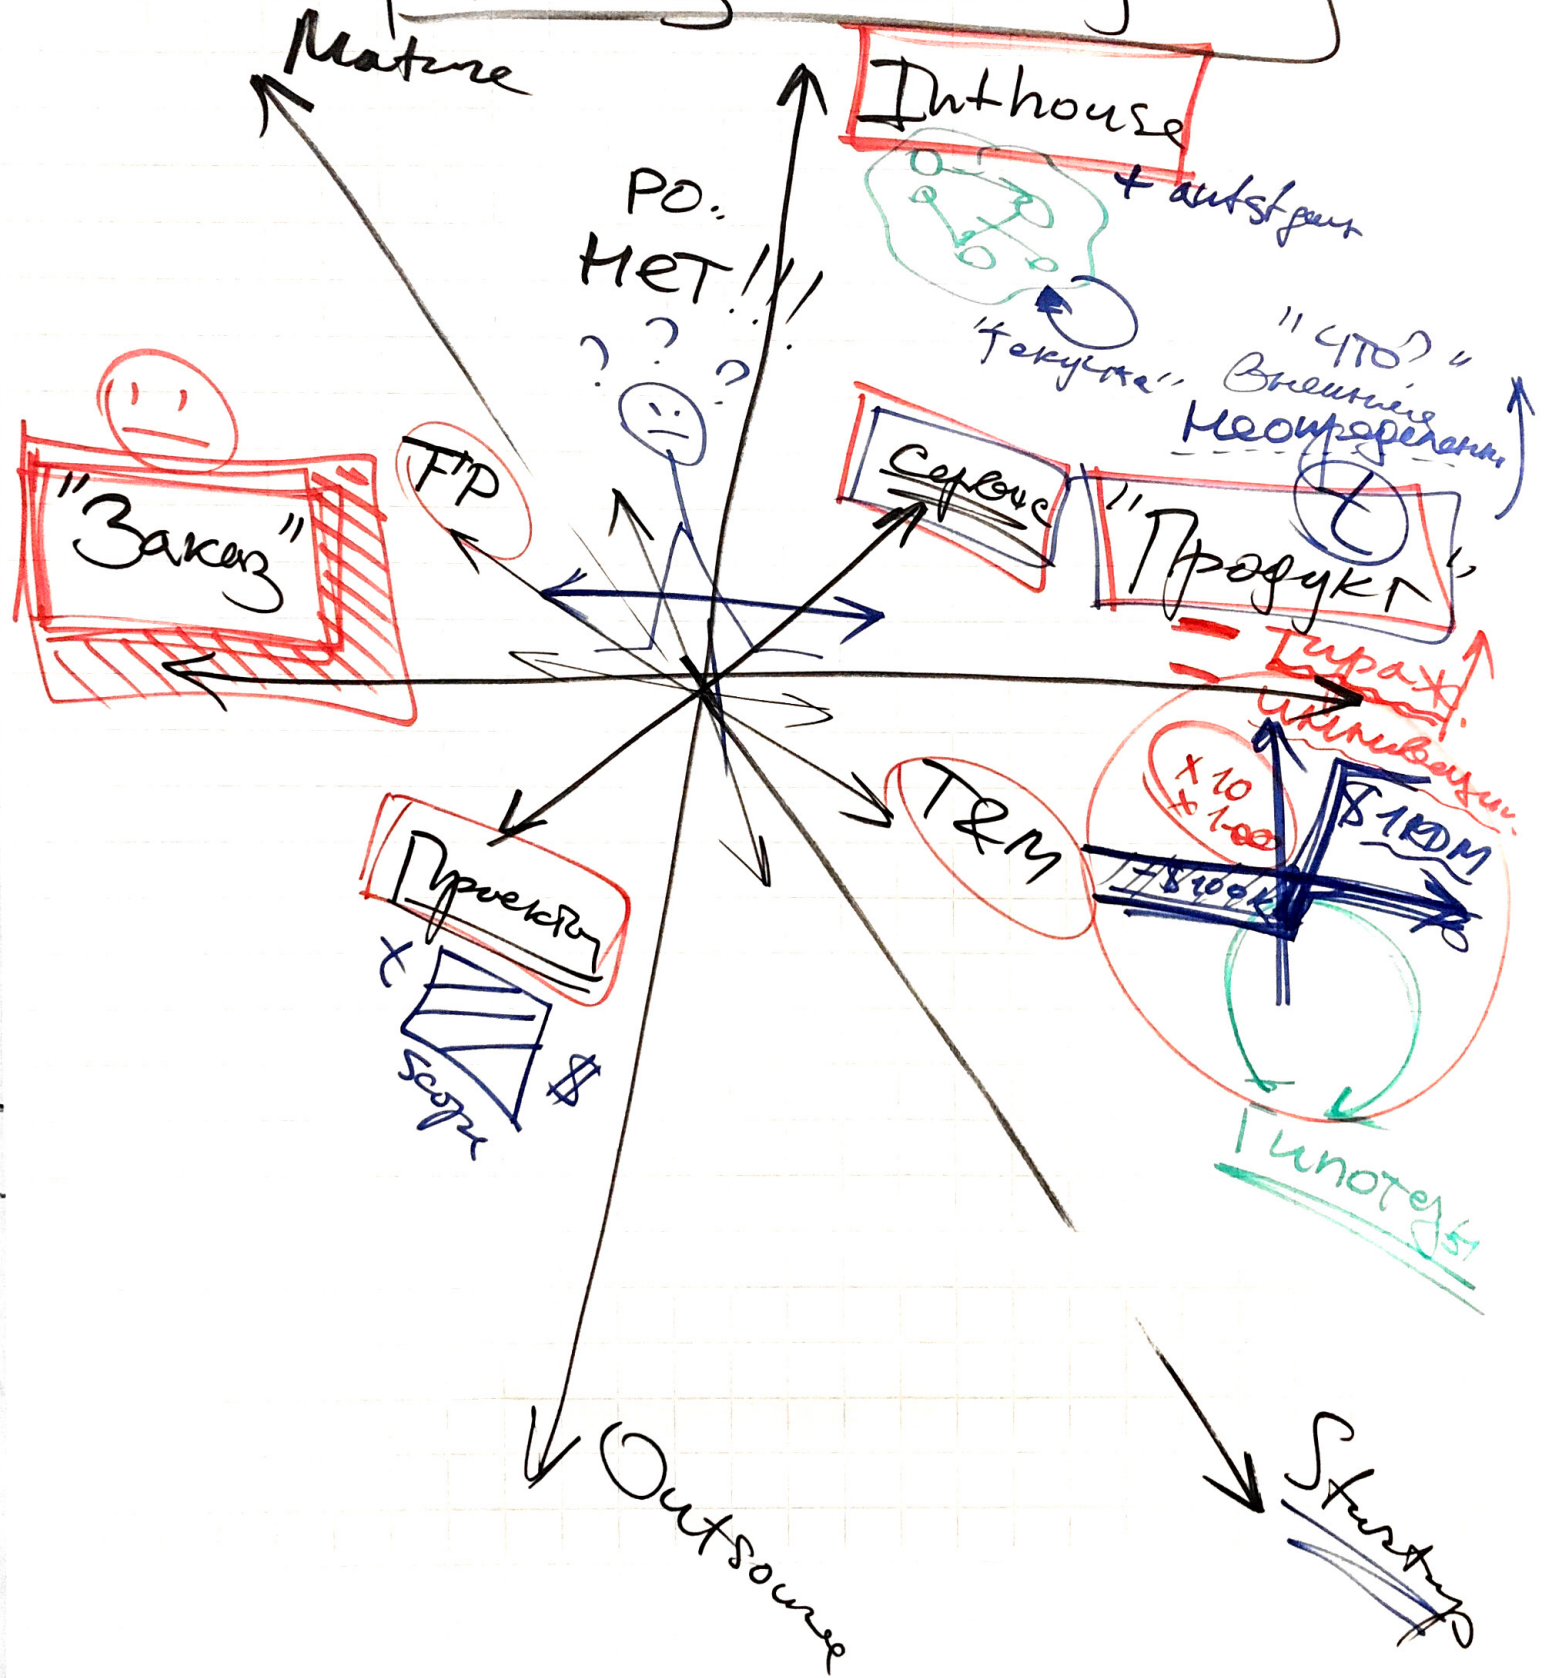 Mature
Inthouse
PO..
НЕТ!!!
? ? ?
"Текучка"
"ЧТО?"
Внешняя
Неопределенн.
"Заказ"
FP
Сервис
"Продукт"
Тираж.
T&M
x10
x100
-$100K
$1RDM
Проекты
X
scope
$
Гипотезы
Outsource
Startup